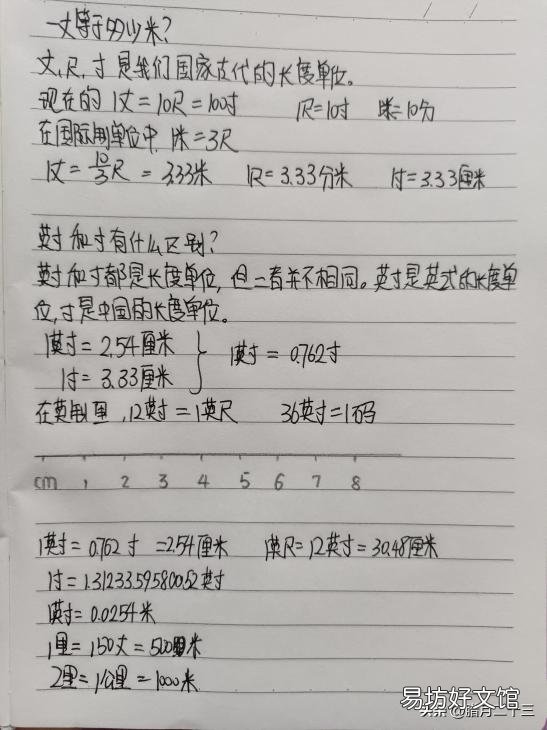 一丈等于多少米?
丈、尺、寸是我们国家古代的长度单位。
现在的 1丈=10尺=100寸 1尺=10寸 1米=10分
在国际用单位中, 1米=3尺
1丈=10/3尺=3.33米 1尺=3.33分米 1寸=3.33厘米
英寸和寸有什么区别?
英寸和寸都是长度单位, 但二者并不相同。英寸是英式的长度单
位, 寸是中国的长度单位。
1英寸=2.54厘米
1寸=3.33厘米
1英寸=0.762寸
在英制里, 12英寸=1英尺 36英寸=1码
cm 1 2 3 4 5 6 7 8
1英寸=0.762寸=2.54厘米 1英尺=12英寸=30.48厘米
1寸=1.3123359580052英寸
1英寸=0.0254米
1里=150丈=500米
2里=1公里=1000米
易坊好文馆
头条@腊月二十三